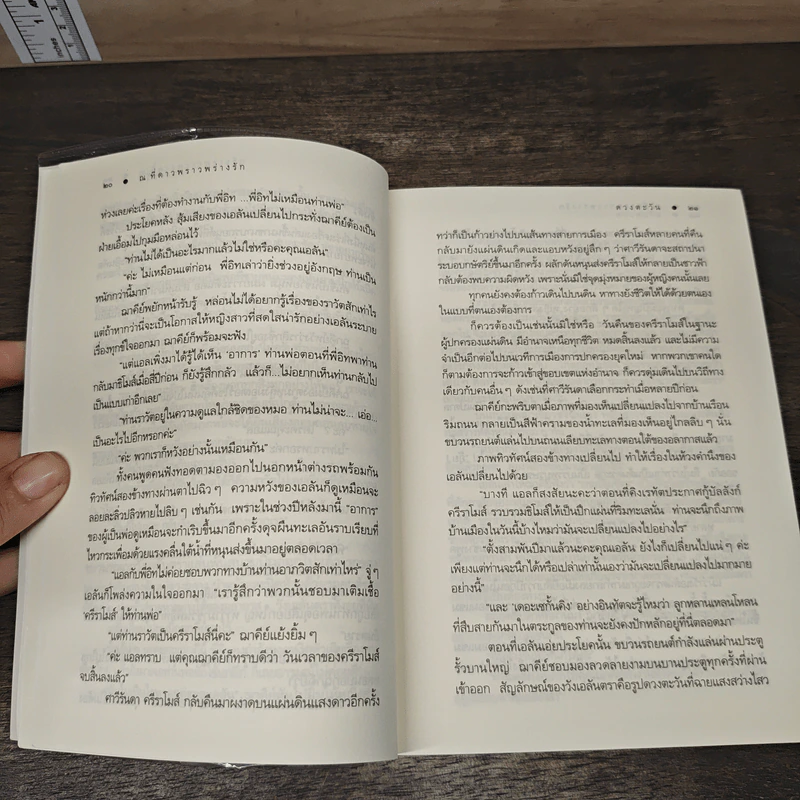 ๒๐ • ณ ที่ดาวพราวพร่างรัก
ห่วงเลยค่ะเรื่องที่ต้องทำงานกับพี่อิท ...พี่อิทไม่เหมือนท่านพ่อ”
ประโยคหลัง สุ้มเสียงของเอลันเปลี่ยนไปกระทั่งฌาคีย์ต้องเป็น
ฝ่ายเอื้อมไปกุมมือหล่อนไว้
“ท่านไม่ได้เป็นอะไรมากแล้วไม่ใช่หรือคะคุณเอลัน”
“ค่ะ ไม่เหมือนแต่ก่อน พี่อิทเล่าว่ายิ่งช่วงอยู่อังกฤษ ท่านเป็น
หนักกว่านี้มาก”
ฌาคีย์พยักหน้ารับรู้ หล่อนไม่ได้อยากรู้เรื่องของราวัตสักเท่าไร
แต่ถ้าหากว่านี่จะเป็นโอกาสให้หญิงสาวที่สดใสน่ารักอย่างเอลันระบาย
เรื่องทุกข์ใจออกมา ฌาคีย์ก็พร้อมจะฟัง
“แต่แอลเพิ่งมาได้รู้ได้เห็น ‘อาการ’ ท่านพ่อตอนที่พี่อิทพาท่าน
กลับมาชิโมส์เมื่อสี่ปีก่อน ก็ยังรู้สึกกลัว แล้วก็...ไม่อยากเห็นท่านกลับไป
เป็นแบบเก่าอีกเลย”
“ท่านราวัตอยู่ในความดูแลใกล้ชิดของหมอ ท่านไม่น่าจะ... เอ่อ...
เป็นอะไรไปอีกหรอกค่ะ”
“ค่ะ พวกเราก็หวังอย่างนั้นเหมือนกัน”
ทั้งคนพูดคนฟังทอดตามองออกไปนอกหน้าต่างรถพร้อมกัน
ทิวทัศน์สองข้างทางผ่านตาไปฉิว ๆ ความหวังของเอลันก็ดูเหมือนจะ
ลอยละลิ่วปลิวหายไปลิบ ๆ เช่นกัน เพราะในช่วงปีหลังมานี้ “อาการ”
ของผู้เป็นพ่อดูเหมือนจะกำเริบขึ้นมาอีกครั้งดุจผืนทะเลอันราบเรียบที่
ไหวกระเพื่อมด้วยแรงคลื่นใต้น้ำที่หนุนส่งขึ้นมาอยู่ตลอดเวลา
“แอลกับพี่อิทไม่ค่อยชอบพวกทางบ้านท่านอาภวิตสักเท่าไหร่” จู่ ๆ
เอลันก็โพล่งความในใจออกมา “เรารู้สึกว่าพวกนั้นชอบมาเติมเชื้อ
‘ครีราโมส์’ ให้ท่านพ่อ”
“แต่ท่านราวัตเป็นครีราโมส์นี่คะ” ฌาคีย์แย้งยิ้ม ๆ
“ค่ะ แอลทราบ แต่คุณฌาคีย์ก็ทราบดีว่า วันเวลาของครีราโมส์
จบสิ้นลงแล้ว”
ศาวีรันดา ครีราโมส์ กลับคืนมาผงาดบนแผ่นดินแสงดาวอีกครั้ง
ดวงตะวัน • ๒๑
ทว่าก็เป็นก้าวย่างไปบนเส้นทางสายการเมือง ครีราโมส์หลายคนที่คืน
กลับมายังแผ่นดินเกิดและแอบหวังอยู่ลึก ๆ ว่าศาวีรันดาจะสถาปนา
ระบอบกษัตริย์ขึ้นมาอีกครั้ง ผลักดันหนุนส่งครีราโมส์ให้กลายเป็นชาวฟ้า
กลับต้องพบความผิดหวัง เพราะนั่นมิใช่จุดมุ่งหมายของผู้หญิงคนนั้นเลย
ทุกคนยังคงต้องก้าวเดินไปบนดิน หาทางยังชีวิตให้ได้ด้วยตนเอง
ในแบบที่ตนเองต้องการ
ก็ควรต้องเป็นเช่นนั้นมิใช่หรือ วันคืนของครีราโมส์ในฐานะ
ผู้ปกครองแผ่นดิน มีอำนาจเหนือทุกชีวิต หมดสิ้นลงแล้ว และไม่มีความ
จำเป็นอีกต่อไปบนเวทีการเมืองการปกครองยุคใหม่ หากพวกเขาคนใด
ก็ตามต้องการจะก้าวเข้าสู่ขอบเขตแห่งอำนาจ ก็ควรดุ่มเดินไปบนวิถีทาง
เดียวกับคนอื่น ๆ ดังเช่นที่ศาวีรันดาเลือกกระทำเมื่อหลายปีก่อน
ฌาคีย์กะพริบตาเมื่อภาพที่มองเห็นเปลี่ยนแปลงไปจากบ้านเรือน
ริมถนน กลายเป็นสีฟ้าครามของน้ำทะเลที่มองเห็นอยู่ไกลลิบ ๆ นั่น
ขบวนรถยนต์แล่นไปบนถนนเลียบทะเลทางตอนใต้ของอลากาสแล้ว
ภาพทิวทัศน์สองข้างทางเปลี่ยนไป ทำให้เรื่องในห้วงคำนึงของ
เอลันเปลี่ยนไปด้วย
“บางที แอลก็สงสัยนะคะว่าตอนที่คิงเรทัตประกาศกู้บัลลังก์
ครีราโมส์ รวบรวมชิโมส์ให้เป็นปีกแผ่นที่ริมทะเลนั่น ท่านจะนึกถึงภาพ
บ้านเมืองในวันนี้บ้างไหมว่ามันจะเปลี่ยนแปลงไปอย่างไร”
“ตั้งสามพันปีมาแล้วนะคะคุณเอลัน ยังไงก็เปลี่ยนไปแน่ ๆ ค่ะ
เพียงแต่ท่านจะนึกได้หรือเปล่าเท่านั้นเองว่ามันจะเปลี่ยนแปลงไปมากมาย
อย่างนี้”
“และ ‘เดอะเซกั้นคิง’ อย่างอินทัตจะรู้ไหมว่า ลูกหลานเหลนโหลน
ที่สืบสายกันมาในตระกูลของท่านจะยังคงปักหลักอยู่ที่นี่ตลอดมา”
ตอนที่เอลันเอ่ยประโยคนั้น ขบวนรถยนต์กำลังแล่นผ่านประตู
รั้วบานใหญ่ ฌาคีย์ชอบมองลวดลายงามบนบานประตูทุกครั้งที่ผ่าน
เข้าออก สัญลักษณ์ของวังเอลันตราคือรูปดวงตะวันที่ฉายแสงสว่างไสว